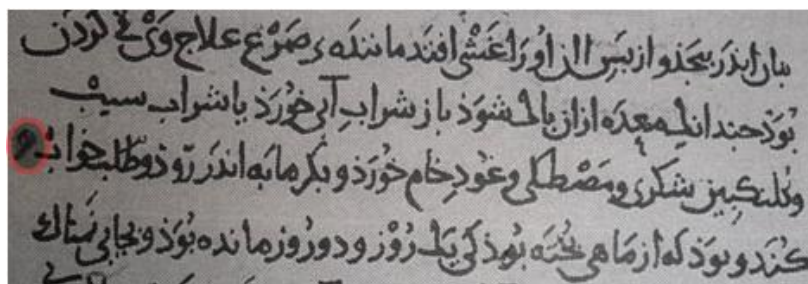 بدان اندر بیجذ و از بس آن او را غشی افتد ماننده صرع علاج وی قی کردن
بوذ جندانك معده ازان باك شوذ باز شراب آبی خورذ یا شراب سیب
و گلنگبین شکری و مصطکی و عود خام خورذ و بگرمابه اندر روذ و طلب خواب
کنذ و بوذ که از ماهی بخته بوذ کی یك روز و دو روز مانده بوذ و بجایی نمناك